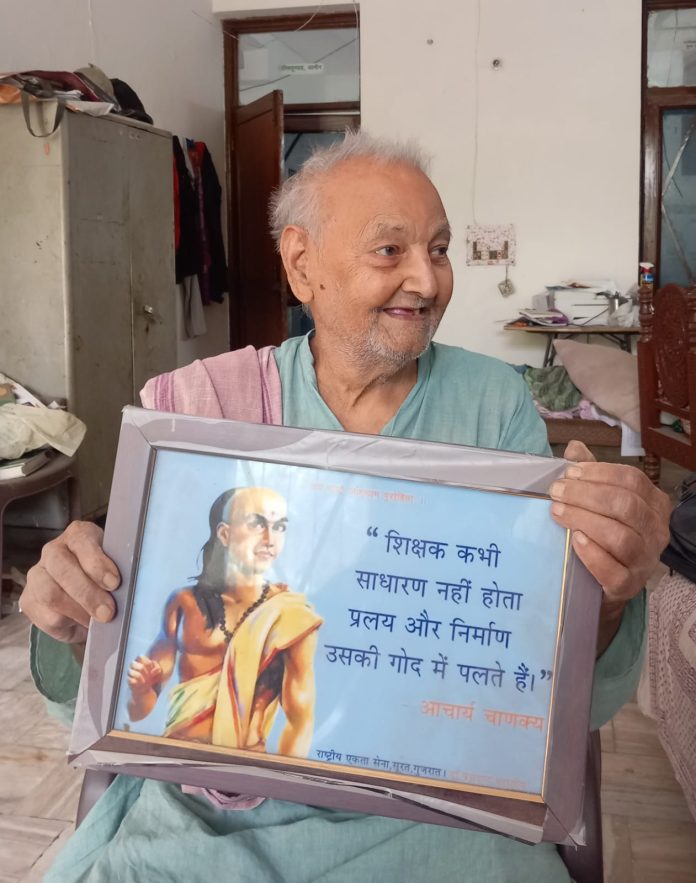 “ शिक्षक कभी
साधारण नहीं होता
प्रलय और निर्माण
उसकी गोद में पलते हैं।”
आचार्य चाणक्य
राष्ट्रीय एकता सेना,सूरत,गुजरात।